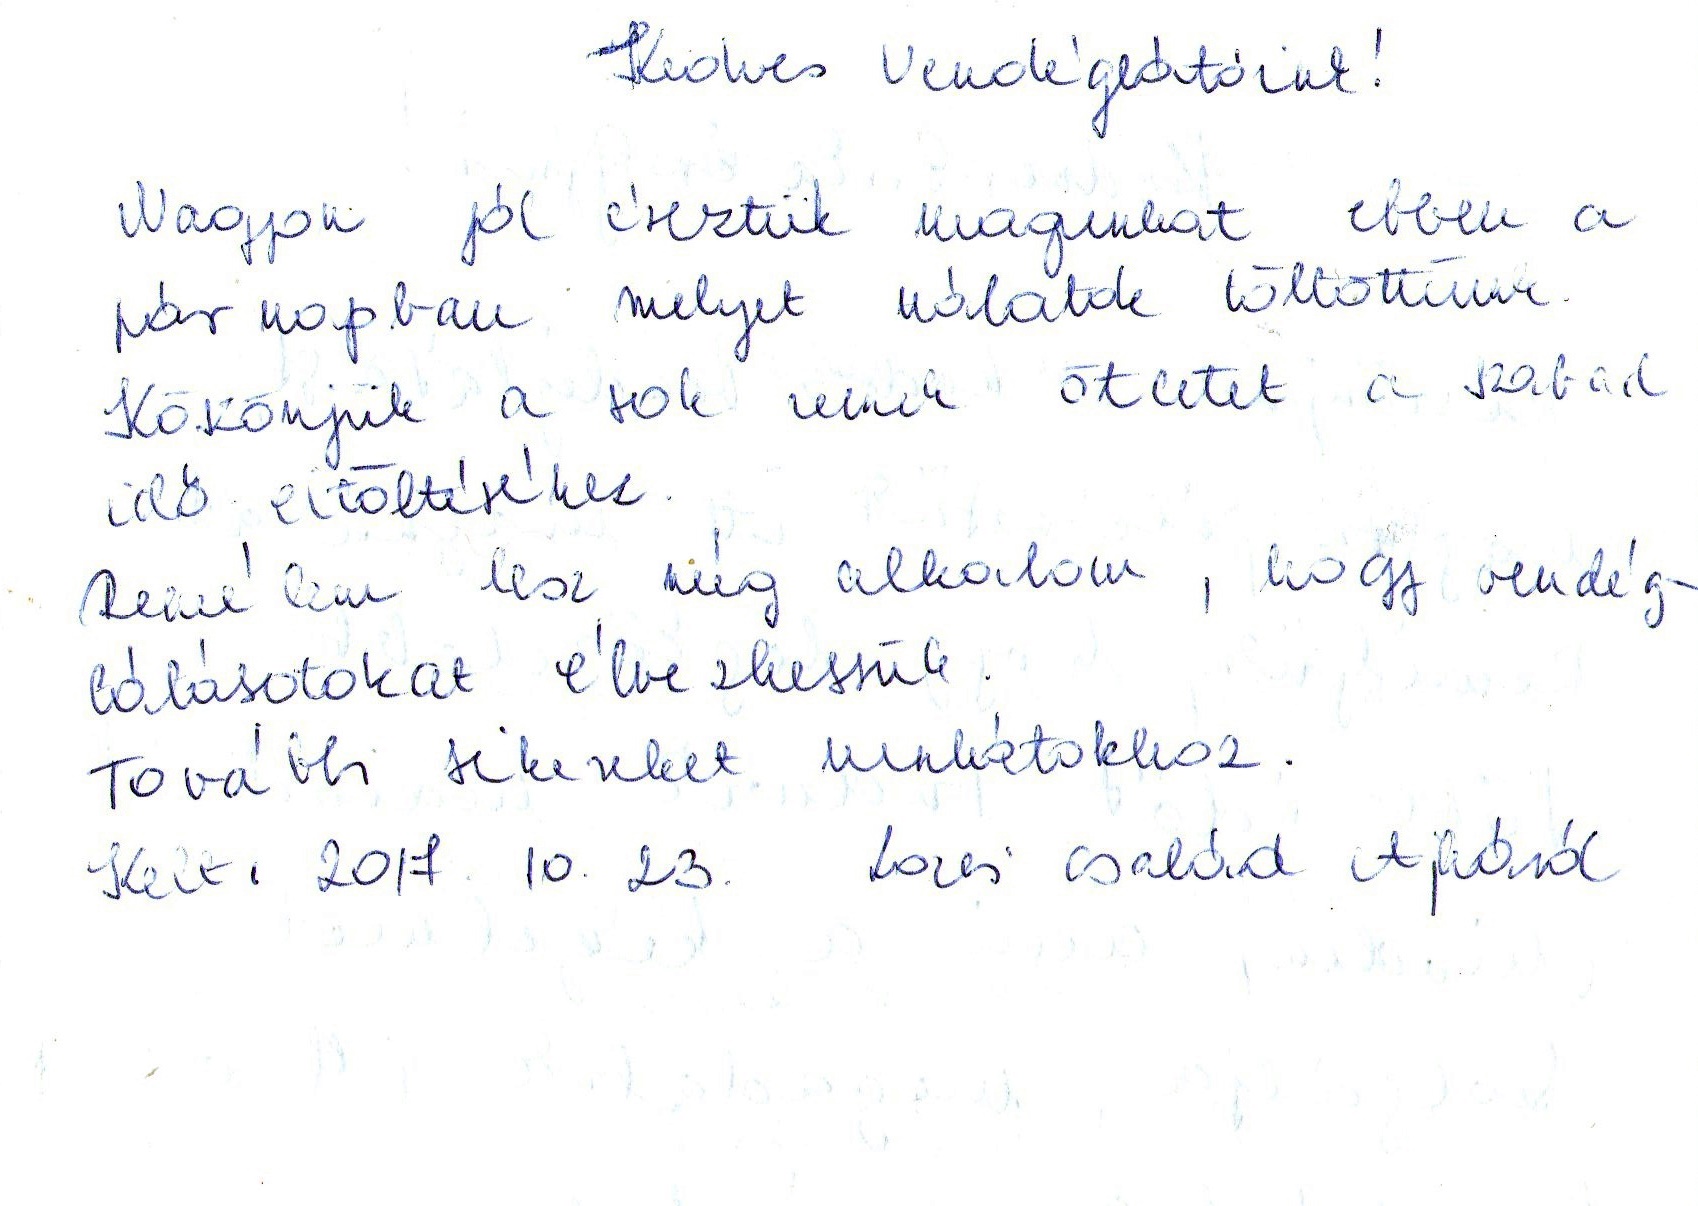 Kedves Vendéglátóink!
Nagyon jól éreztük magunkat ebben a
pár napban melyet nálatok töltöttünk.
Köszönjük a sok remek ötletet a szabad
idő eltöltéséhez.
Remélem lesz még alkalom, hogy vendég-
látásotokat élvezhessük.
További sikereket munkátokhoz.
Kelt. 2017. 10. 23. család Ajkáról